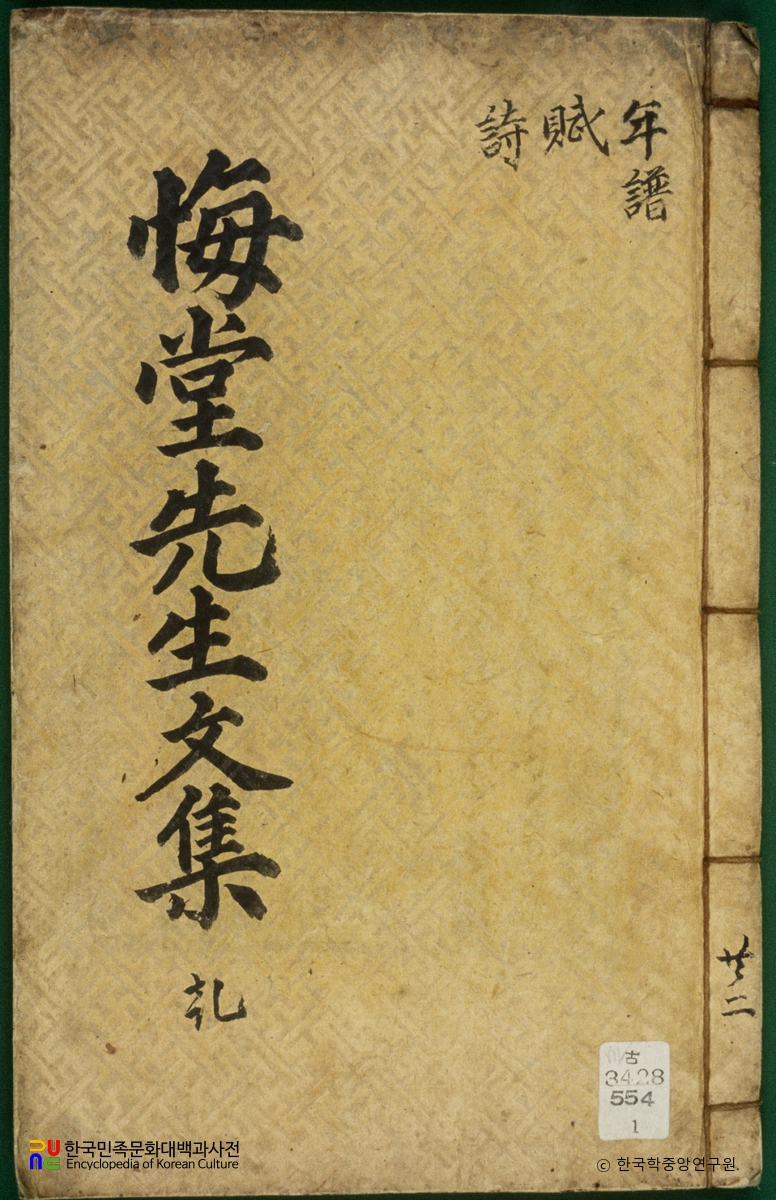 年譜
賦
詩
悔堂先生文集
礼
共二
古
3428
554
1
한국민족문화대백과사전
Encyclopedia of Korean Culture
ⓒ 한국학중앙연구원